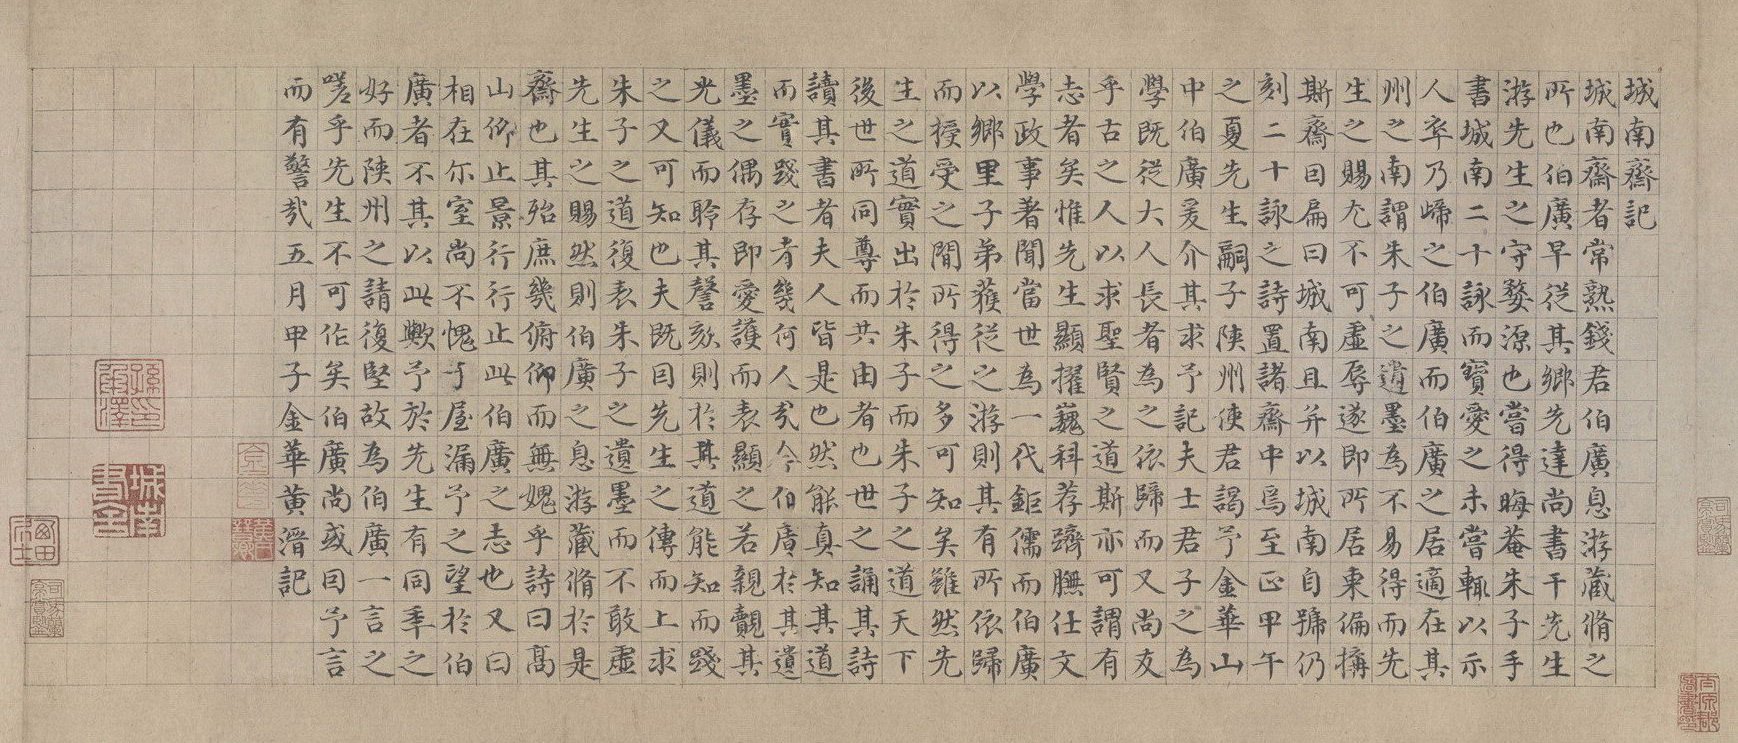 城南齋記
城南齋者常熟錢君伯廣息游藏脩之
所也伯廣早從其鄉先達尚書干先生
游先生之守婺源也嘗得晦菴朱子手
書城南二十詠而寶愛之未嘗輒以示
人卒乃歸之伯廣而伯廣之居適在其
州之南謂朱子之遺墨為不易得而先
生之賜尤不可虛辱遂即所居東偏搆
斯齋因扁曰城南且并以城南自號仍
刻二十詠之詩置諸齋中焉至正甲午
之夏先生嗣子陝州使君謁予金華山
中伯廣爰介其求予記夫士君子之為
學既從大人長者為之依歸而又尚友
乎古之人以求聖賢之道斯亦可謂有
志者矣惟先生顯擢巍科荐躋膴仕文
學政事著聞當世為一代鉅儒而伯廣
以鄉里子弟獲從之游則其有所依歸
而授受之間所得之多可知矣雖然先
生之道實出於朱子而朱子之道天下
後世所同尊而共由者也世之誦其詩
讀其書者夫人皆是也然能真知其道
而實踐之者幾何人哉今伯廣於其遺
墨之偶存即愛護而表顯之若親覿其
光儀而聆其謦欬則於其道能知而踐
之又可知也夫既因先生之傳而上求
朱子之道復表朱子之遺墨而不敢虛
先生之賜然則伯廣之息游藏脩於是
齋也其殆庶幾俯仰而無媿乎詩曰高
山仰止景行行止此伯廣之志也又曰
相在尔室尚不愧于屋漏予之望於伯
廣者不其以此歟予於先生有同年之
好而陝州之請復堅故為伯廣一言之
嗟乎先生不可作矣伯廣尚或因予言
而有警哉五月甲子金華黃溍記